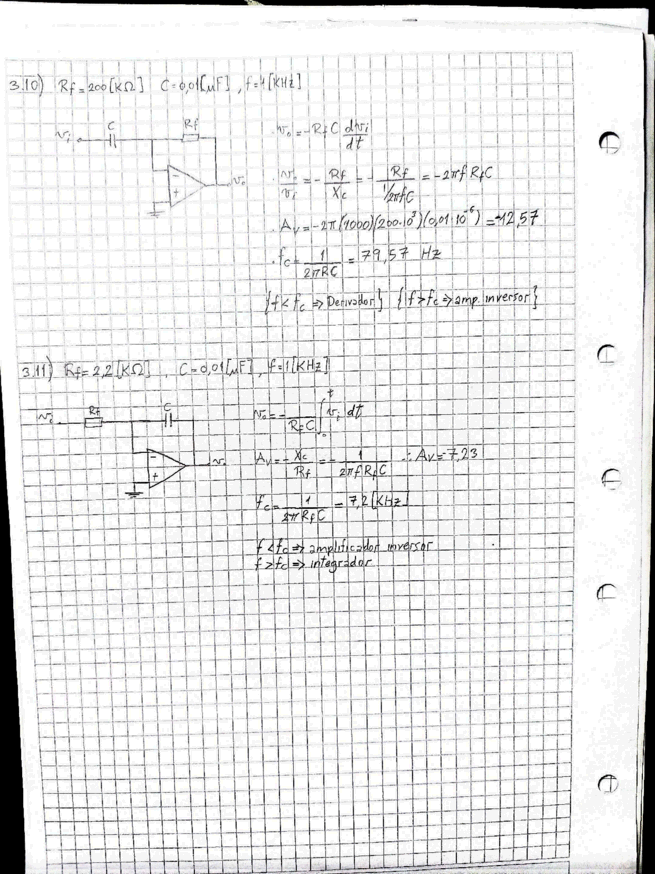 3.10) Rf=200[KΩ] C=0,01[μF], f=1[KHz]
vi C Rf vo
- +
vo = -RfC dvi/dt
vo/vi = -Rf/Xc = -Rf/(1/2πfC) = -2πf RfC
Av = -2π(1000)(200·10³)(0,01·10⁻⁶) = -12,57
fc = 1/2πRC = 79,57 Hz
{f<fc ⇒ Derivador} {f>fc ⇒ amp. inversor}
3.11) Rf=2,2[KΩ], C=0,01[μF], f=1[KHz]
Rf C
- +
vo = -1/RfC ∫ vi dt
Av = -Xc/Rf = -1/2πf RfC ∴ Av=-7,23
fc = 1/2πRfC = 7,2[KHz]
f<fc ⇒ amplificador inversor
f>fc ⇒ integrador